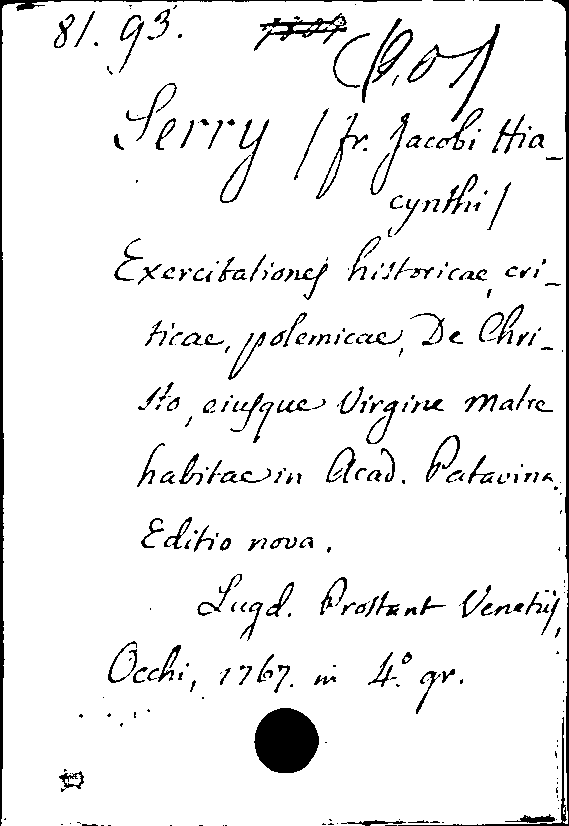 81. 93.
Serry / fr. Jacobi Hia_
cynthi /
Exercitationes historicae, cri_
ticae, polemicae, De Chri_
sto, eiusque Virgine Matre
habitae in Acad. Patavina.
Editio nova.
Lugd. Prostant Venetijs,
Occhi, 1767. in 4.o gr.